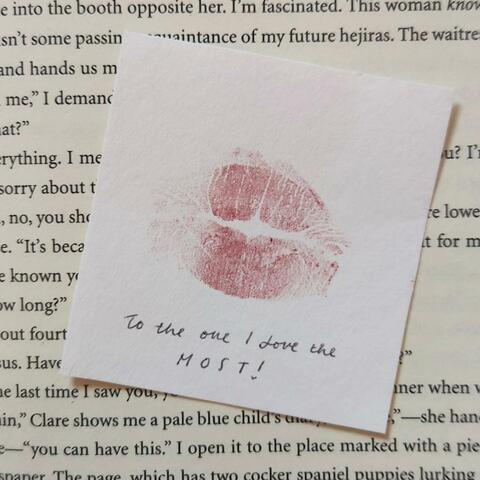 e into the booth opposite her. I'm fascinated. This woman know
sn't some passin quaintance of my future hejiras. The waitre
and hands us m
me,” I demand
at?”
erything. I me u? I'
sorry about t
, no, you sho re lowe
e. “It's beca t for m
e known yo
ow long?”
out fourt ?”
sus. Have
he last time I saw you, y nner when
in,” Clare shows me a pale blue child's ,”—she han
e—“you can have this.” I open it to the place marked with a pie
spaper. The page, which has two cocker spaniel puppies lurking
To the one I love the
MOST!